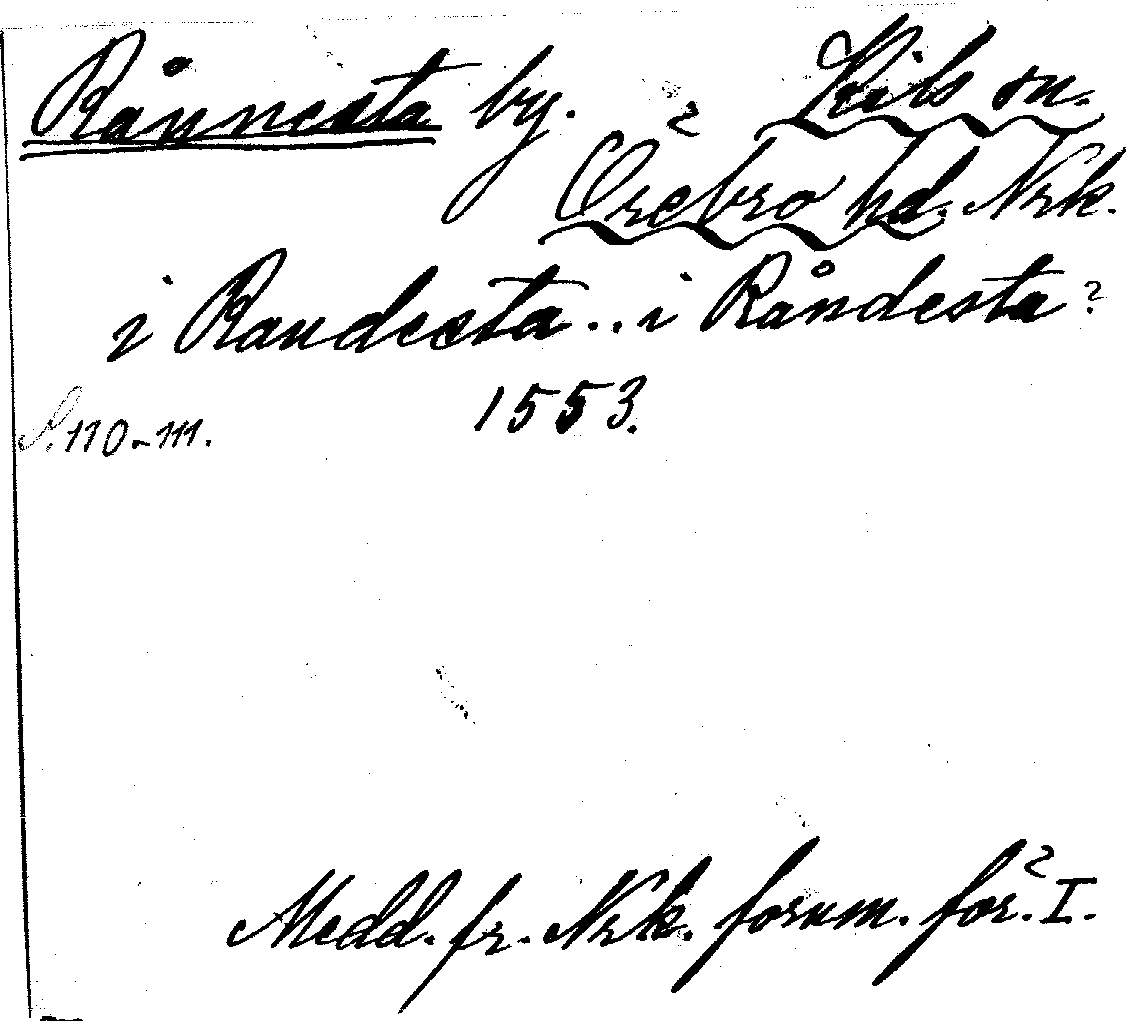 Rånnesta by. Kils sn.
Örebro hd. Nrk.
i Randesta .. i Råndesta
1553.
S. 110-111.
Medd. fr. Nrk. fornm. för. I.